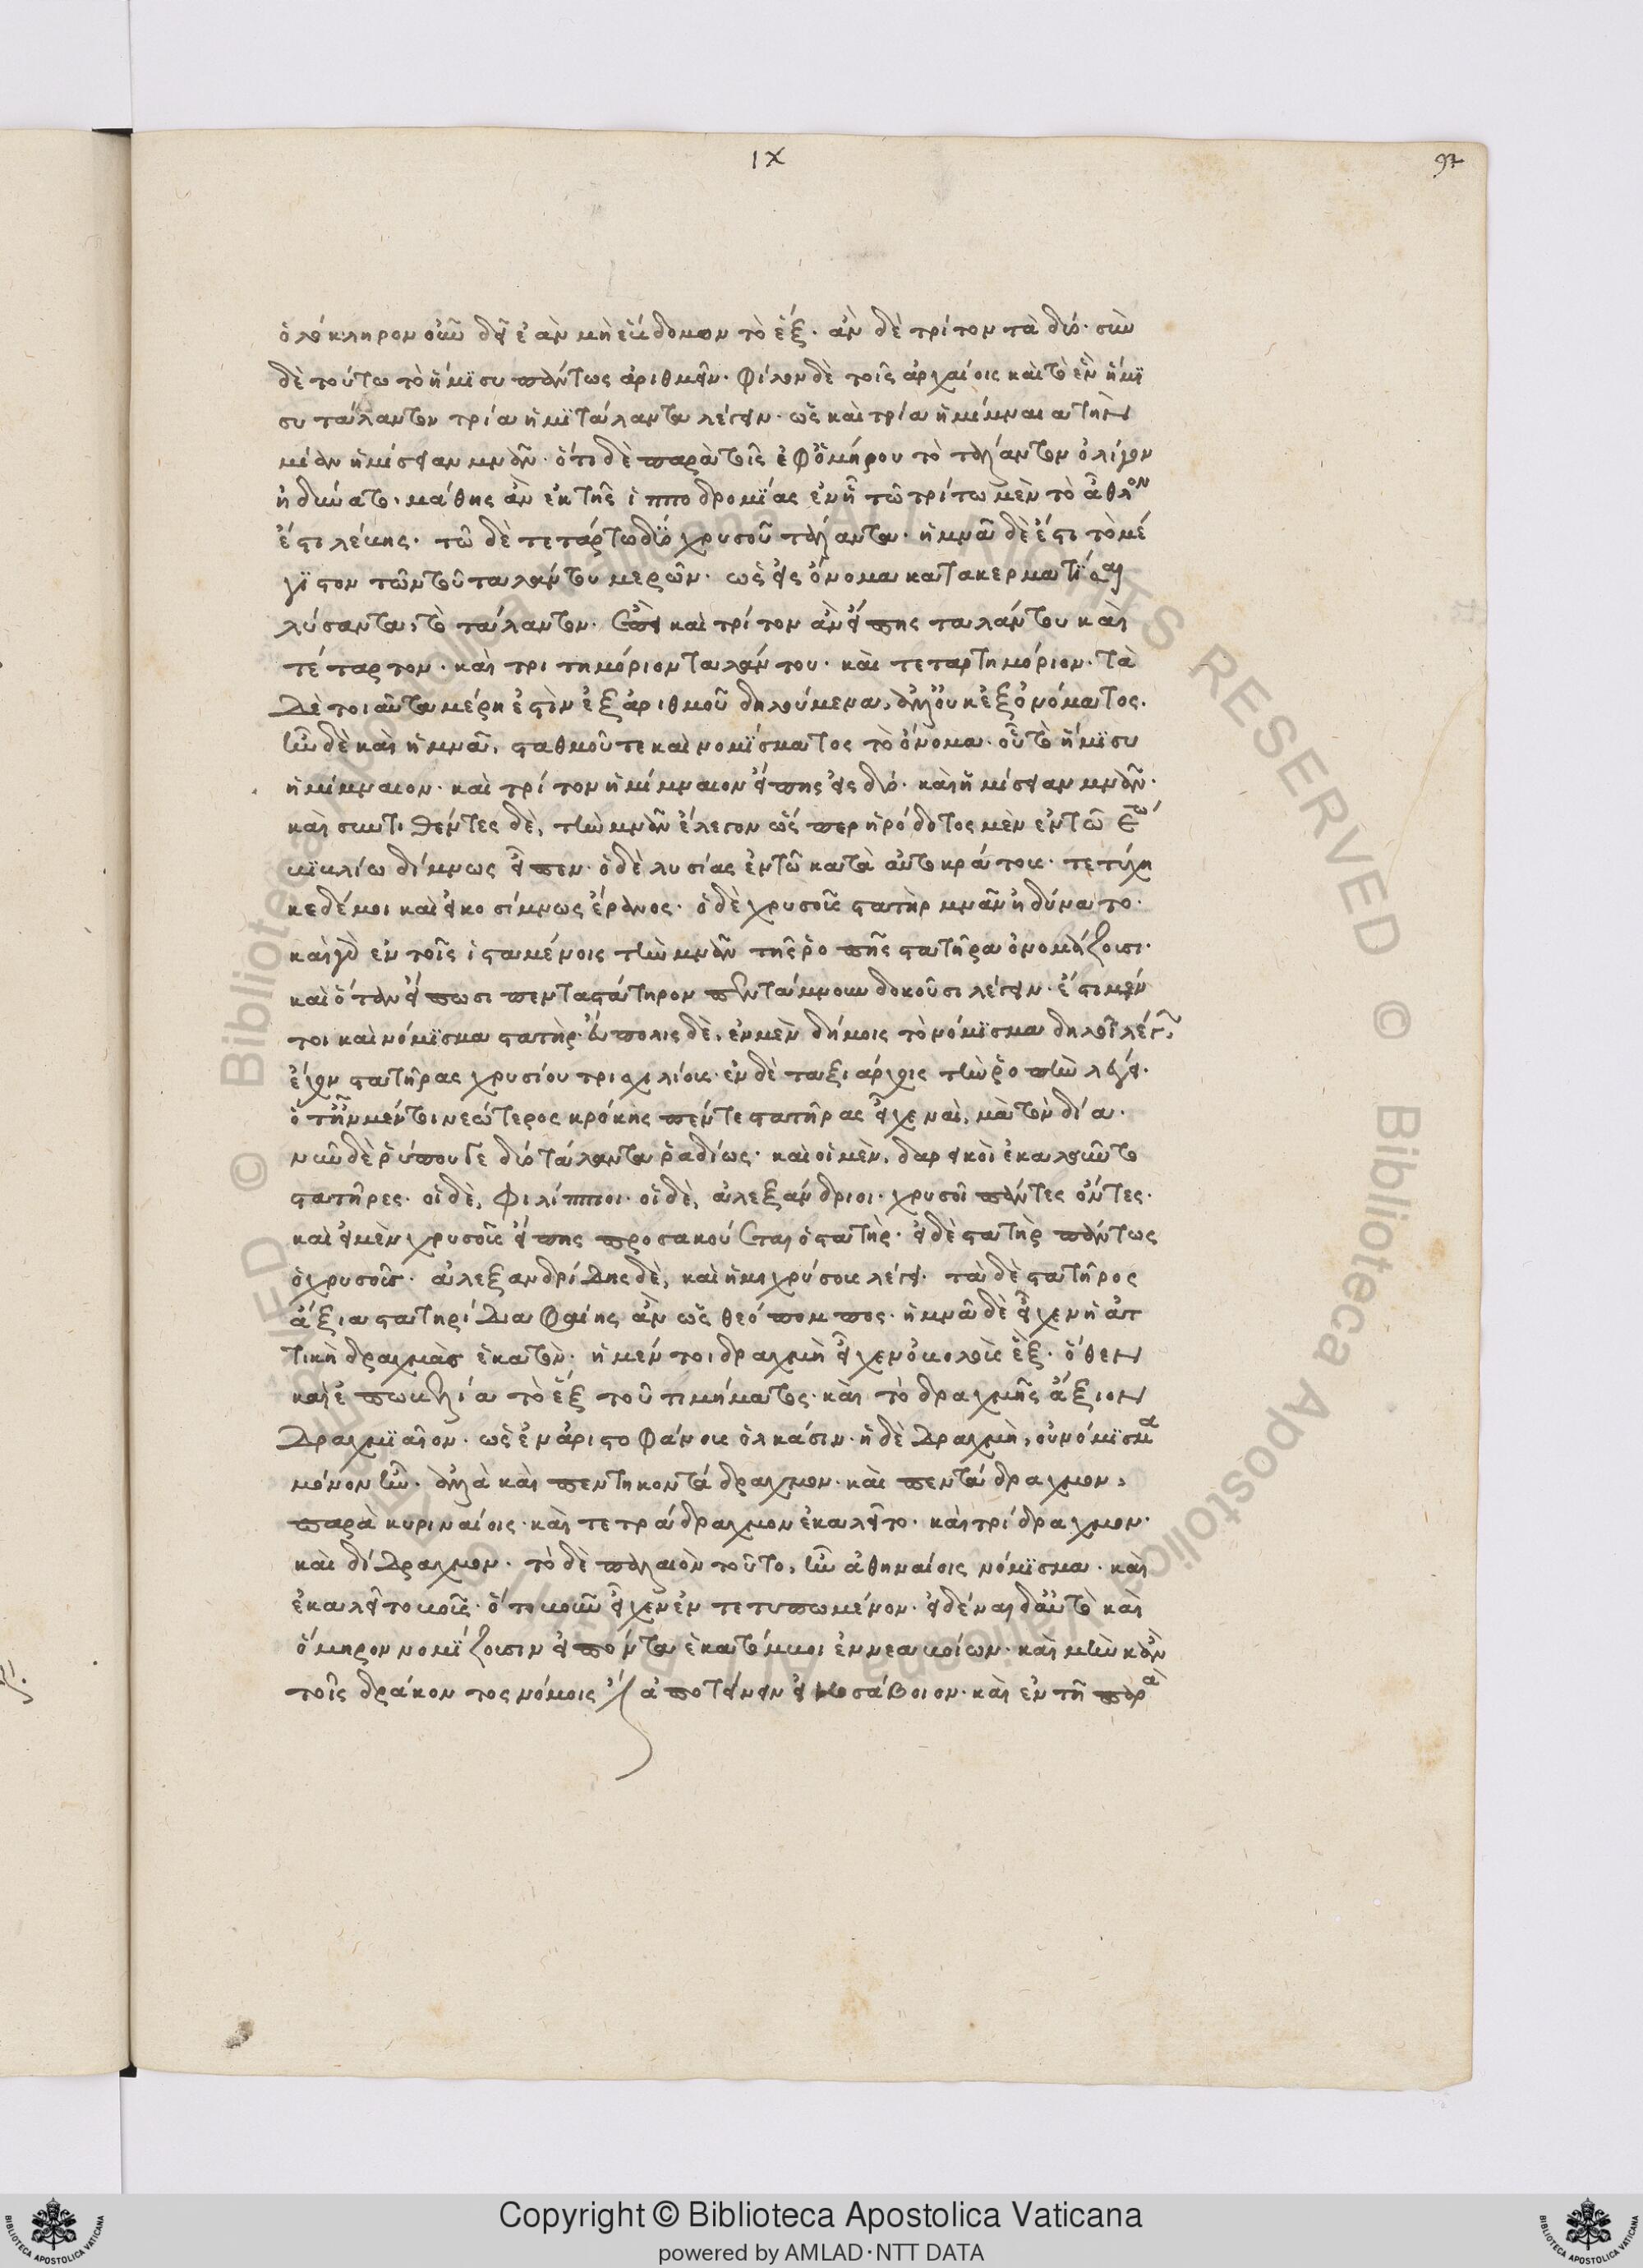 IX
97
ὁλόκληρον οὖν δεῖ ἐὰν μὴ ἕβδομον τὸ ἐξ. ἂν δὲ τρίτον τὰ δύο. σὺν
δὲ τούτω τὸ ἥμϊσυ πάντως ἀριθμεῖν. φίλον δὲ τοῖς ἀρχαίοις καὶ τὸ ἓν ἥμϊ
συ τάλαντον τρία ἡμϊτάλαντα λέγειν. ὡς καὶ τρία ἡμίμναια τὴν
μίαν ἡμίσειαν μνᾶν. ὅτι δὲ παρὰ τοῖς ἐφ' ὁμήρου τὸ τάλαντον ὀλίγον
ἠδύνατο, μάθης ἂν ἐκ τῆς ἱπποδρομίας ἐν ἧ τῶ τρίτω μὲν τὸ ἆθλον
ἐστι λέβης. τῶ δὲ τετάρτω δύο χρυσοῦ τάλαντα. ἡ μνᾶ δὲ ἐστι τὸ μέ
γϊστον τῶν τοῦ ταλάντου μερῶν. ὡς εἰς ὄνομα κατακερματίσαι
λύσαντα, τὸ τάλαντον. ἐπεὶ καὶ τρίτον ἂν εἴπης ταλάντου καὶ
τέταρτον. καὶ τριτημόριον ταλάντου. καὶ τεταρτημόριον. τὰ
δὲ τοιαῦτα μέρη ἐστὶν ἐξ ἀριθμοῦ δηλούμενα, ἀλλ' οὐκ ἐξ ὀνόματος.
ἦν δὲ καὶ ἡ μνᾶ, σταθμοῦ τε καὶ νομίσματος τὸ ὄνομα. οὗ τὸ ἥμϊσυ
ἡμίμναιον. καὶ τρίτον ἡμίμναιον εἴπης εἰς δύο. καὶ ἡμίσειαν μνᾶν.
καὶ συντιθέντες δὲ, τὴν μνᾶν ἔλεγον ὥς περ ἡρόδοτος μὲν ἐν τῶ
βϊβλίω δίμνως εἶπεν. ὁ δὲ λυσίας ἐν τῶ κατὰ αὐτοκράτους. τετύχη
κε δέ μοι καὶ εἰκοσίμνως ἔρανος. ὁ δὲ χρυσοῦς στατὴρ μνᾶν ἠδύνατο.
καὶ γὰρ ἐν τοῖς ἱσταμένοις τὴν μνᾶν τῆς ῥοπῆς στατῆρα ὀνομάζουσι.
καὶ ὅταν εἴπωσι πενταστάτηρον πεντάμνουν δοκοῦσι λέγειν. ἔστι μέν
τοι καὶ νόμϊσμα στατήρ. εὔπολις δὲ, ἐν μὲν δήμοις τὸ νόμϊσμα δηλοῖ λέγων,
ἔχων στατῆρας χρυσίου τρισχιλίους. ἐν δὲ ταξιάρχοις τὴν ῥοπὴν λέγει.
ὅτ' ἦν μέντοι νεώτερος κρόκης πέντε στατῆρας εἶχε ναὶ, μὰ τὸν δία.
νῦν δὲ ῥύπου γε δύο τάλαντα ῥαδίως. καὶ οἱ μὲν, δαρεικοὶ ἐκαλοῦντο
στατῆρες. οἱ δὲ, φιλίπποι. οἱ δὲ, ἀλεξάνδριοι. χρυσοῖ πάντες ὄντες.
καὶ εἰ μὲν χρυσοῦς εἴπης προσακούεται ὁ στατήρ. εἰ δὲ στατὴρ πάντως
ὁ χρυσοῦς. ἀλεξανδρίδης δὲ, καὶ ἡμιχρύσους λέγει. τὰ δὲ στατῆρος
ἄξια στατηρίδια φαίης ἂν ὡς θεόπομπος. ἡ μνᾶ δὲ εἶχεν ἡ ἀτ
τικὴ δραχμὰς ἑκατόν. ἡ μέν τοι δραχμὴ εἶχεν ὀβολοὺς ἕξ. ὅθεν
καὶ ἐπωβελία τὸ ἕξ τοῦ τιμήματος. καὶ τὸ δραχμῆς ἄξιον
δραχμϊαῖον. ὡς ἐν ἀριστοφάνους ὁλκάσιν. ἡ δὲ δραχμὴ, οὐ νόμϊσμα
μόνον ἦν. ἀλλὰ καὶ πεντηκοντάδραχμον. καὶ πεντάδραχμον,
παρὰ κυριναίοις. καὶ τετράδραχμον ἐκαλεῖτο. καὶ τρίδραχμον.
καὶ δίδραχμον. τὸ δὲ παλαιὸν τοῦτο, ἦν ἀθηναίοις νόμϊσμα. καὶ
ἐκαλεῖτο βοῦς. ὅτι βοῦν εἶχεν ἐντετυπωμένον. εἰδέναι δ' αὐτὸ καὶ
ὅμηρον νομϊζουσιν εἰπόντα ἑκατόμβοι ἐννεαβοίων. καὶ μὴν κἂν
τοῖς δράκοντος νόμοις ἐστὶν ἀποτείνειν εἰκοσάβοιον. καὶ ἐν τῆ παρὰ